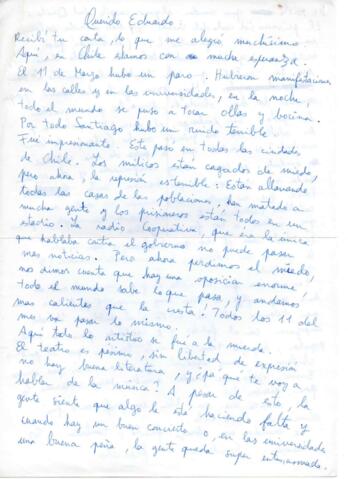 Querido Eduardo:
Recibí tu carta, lo que me alegró muchísimo.
Aquí, en Chile estamos con mucha esperanza.
El 11 de Marzo hubo un paro. Hubieron manifestaciones
en las calles y en las universidades, en la noche,
todo el mundo se puso a tocar ollas y bocina.
Por todo Santiago hubo un ruido terrible.
Fué impresionante. Esto pasó en todas las ciudades
de Chile. Los milicos están cagados de miedo,
pero ahora, la represión es terrible: Están allanando
todas las casas de las poblaciones, han matado a
mucha gente y los prisioneros están todos en un
estadio. La radio Cooperativa, que era la única
que hablaba contra el gobierno no puede pasar
mas noticias. Pero ahora perdimos el miedo,
nos dimos cuenta que hay una oposición enorme.
Todo el mundo sabe lo que pasa, y andamos
mas calientes que la cresta! Todos los 11 del
mes va pasar lo mismo.
Aquí todo lo artístico se fue a la mierda.
El teatro es pésimo, sin libertad de expresión
no hay buena literatura, y ¿pa que te voy a
hablar de la música? A pesar de esto la
gente siente que algo le está haciendo falta y
cuando hay un buen concierto o, en las universidades
una buena peña, la gente queda super entusiasmada.